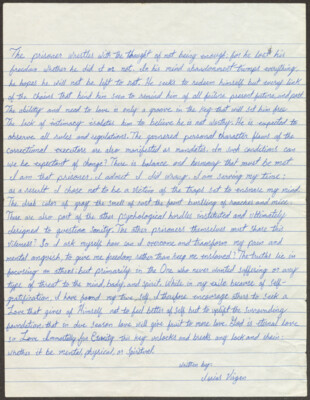 The prisoner wrestles with the thought of not being enough, for he lost his
freedom whether he did it or not. In his mind abandonment trumps everything;
he hopes he will not be left to rot. He seeks to redeem himself but every link
of the chains that bind him seem to remind him of all future, present future, and past.
The ability and need to love is only a groove in the key that will set him free.
The lack of intimacy isolates him to believe he is not worthy. He is expected to
observe all rules and regulations. The perversed personal character flaws of the
correctional executors are also manifested as mandates. In such conditions can
we be expectant of change? There is balance and harmony that must be met.
I am that prisoner, I admit I did wrong. I am serving my time;
as a result I chose not to be a victim of the traps but to increase my mind.
The drab color of gray, the smell of rust, the paint bubbling of rancher and misc.
These are also part of the other psychological hurdles instituted and ultimately
designed to question sanity. The other prisoners themselves must share this
interest? So I ask myself how can I overcome and transform my pain and
mental anguish to give me freedom rather than keep me enslaved? The truth lies in
focusing on others but primarily in the One who never wanted suffering or any
type of threat to the mind, body, and spirit. While in my exile because of self-
gratification, I have found my true self. I therefore encourage others to seek a
Love that gives of Himself not to feel better of self but to uplift the surrounding
foundation; that in due season love will give fruit to more love. God is eternal love
so Love Immortality for Eternity. This key unlocks and breaks any lock and chain;
whether it be mental, physical, or Spiritual.
written by: